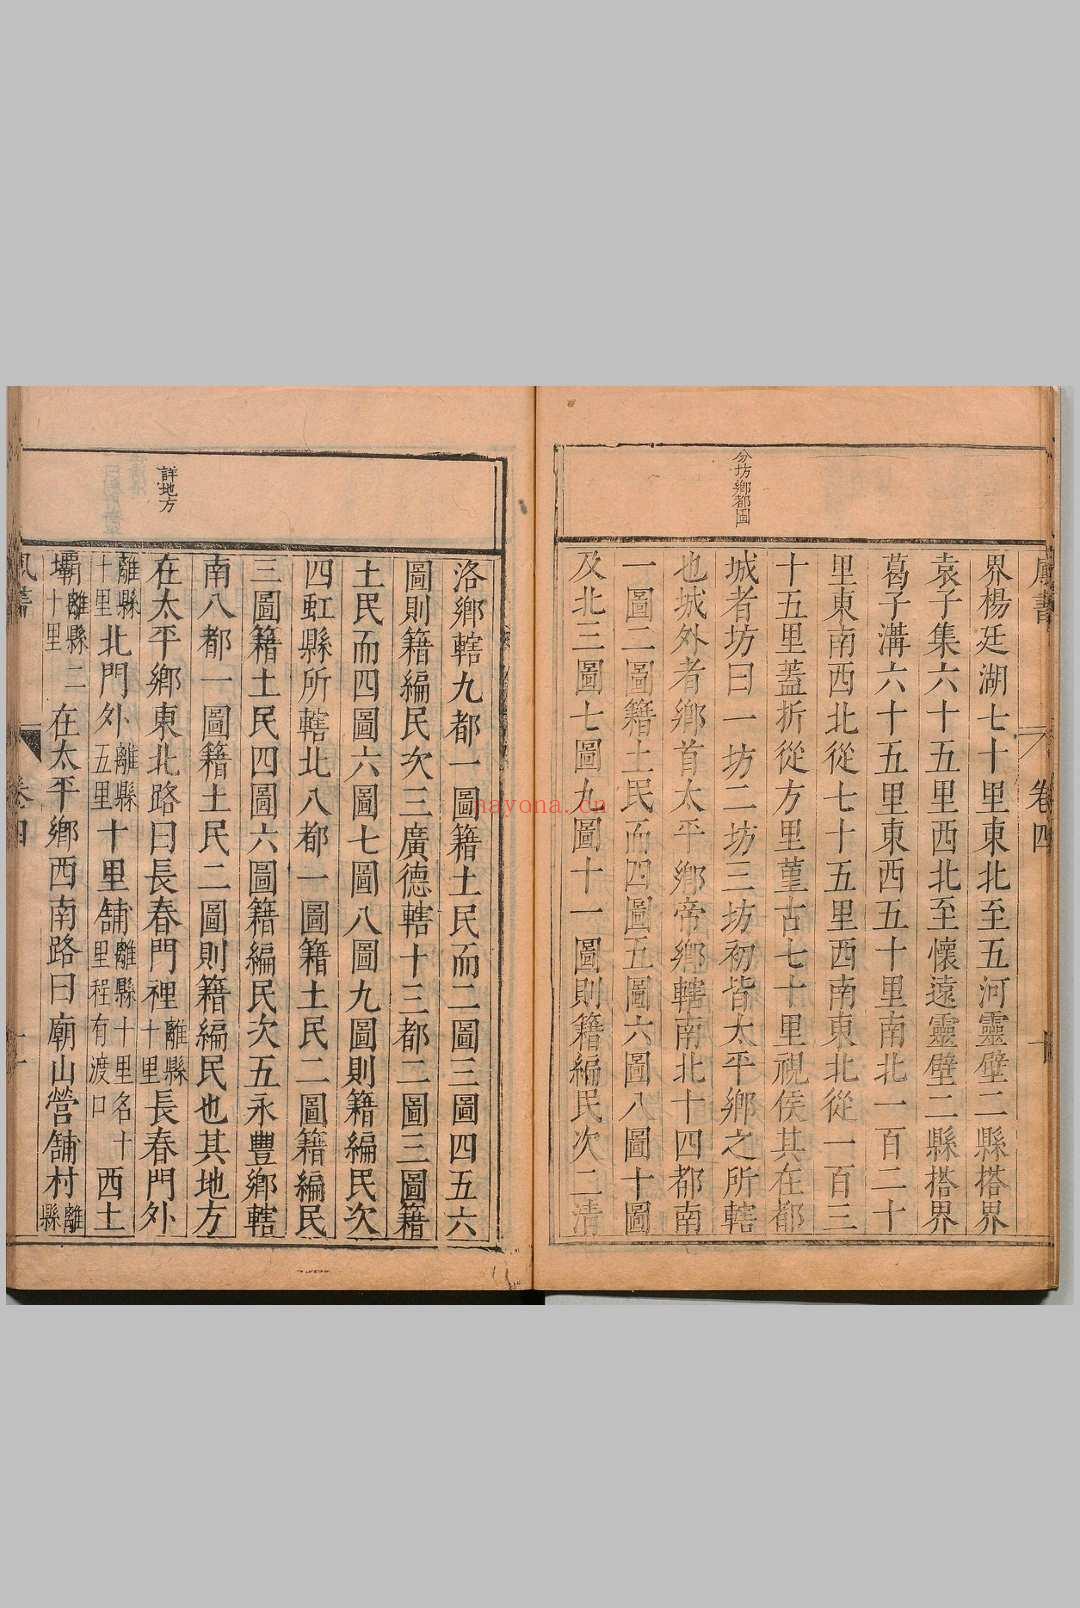 鳳書 卷四
分坊鄉都圖
界楊廷湖七十里東北至五河靈壁二縣搭界
袁子集六十五里西北至懷遠靈壁二縣搭界
葛子溝六十五里東西五十里南北一百二十
里東南西北從七十五里西南東北從一百三
十五里蓋折從方里堇古七十里視侯其在都
城者坊曰一坊二坊三坊初皆太平鄉之所轄
也城外者鄉首太平鄉帝鄉轄南北十四都南
一圖二圖籍土民而四圖五圖六圖八圖十圖
及北三圖七圖九圖十一圖則籍編民次二清
洛鄉轄九都一圖籍土民而二圖三圖四五六
圖則籍編民次三廣德轄十三都二圖三圖籍
土民而四圖六圖七圖八圖九圖則籍編民次
四虹縣所轄北八都一圖籍土民二圖籍編民
三圖籍土民四圖六圖籍編民次五永豐鄉轄
南八都一圖籍土民二圖則籍編民也其地方
詳地方
在太平鄉東北路曰長春門裡離縣十里長春門外
離縣十里北門外離縣五里十里舖離縣十里名十里程有渡口西土
壩離縣二十里在太平鄉西南路曰廟山營舖村離縣
卷四
nayona.cn